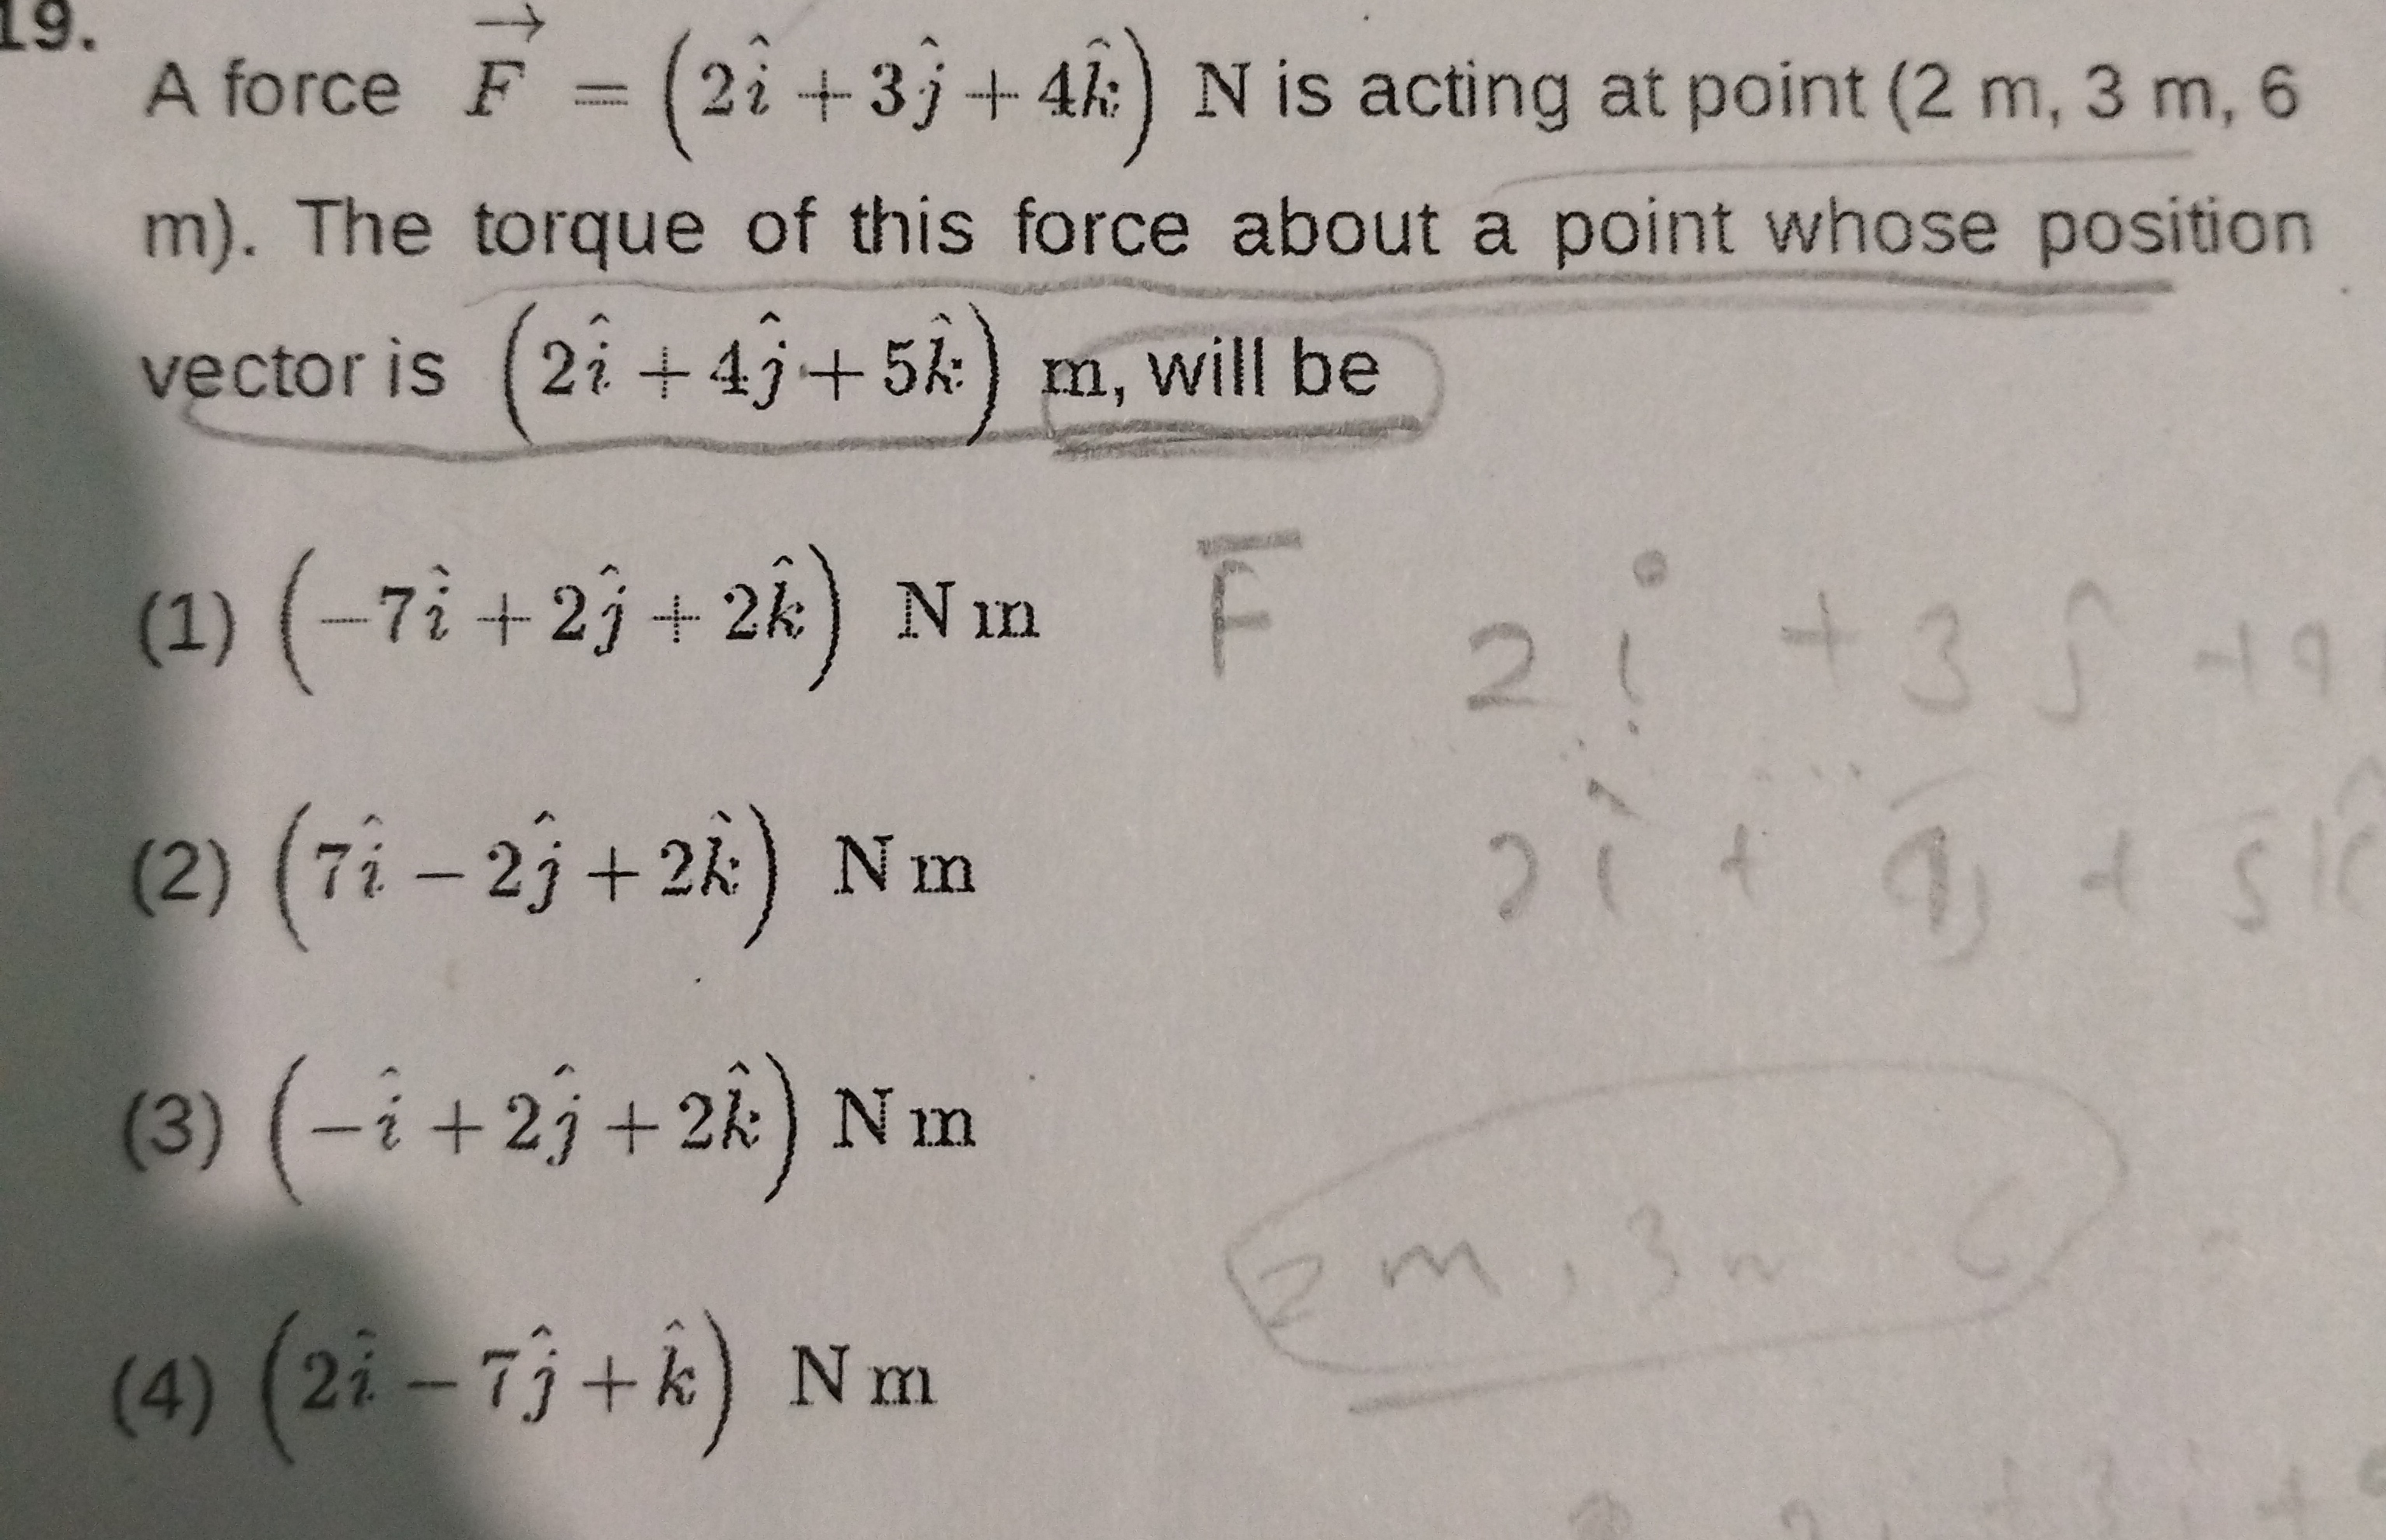 19.
A force $\overrightarrow{F} = (2\hat{i} + 3\hat{j} + 4\hat{k})$ N is acting at point (2 m, 3 m, 6
m). The torque of this force about a point whose position
vector is $(2\hat{i} + 4\hat{j} + 5\hat{k})$ m, will be
(1) $(-7\hat{i} + 2\hat{j} + 2\hat{k})$ N m
(2) $(7\hat{i} - 2\hat{j} + 2\hat{k})$ N m
(3) $(-\hat{i} + 2\hat{j} + 2\hat{k})$ N m
(4) $(2\hat{i} - 7\hat{j} + \hat{k})$ N m
F̅ 2i + 3j
2i + 4j + 5k
2m, 3m 6